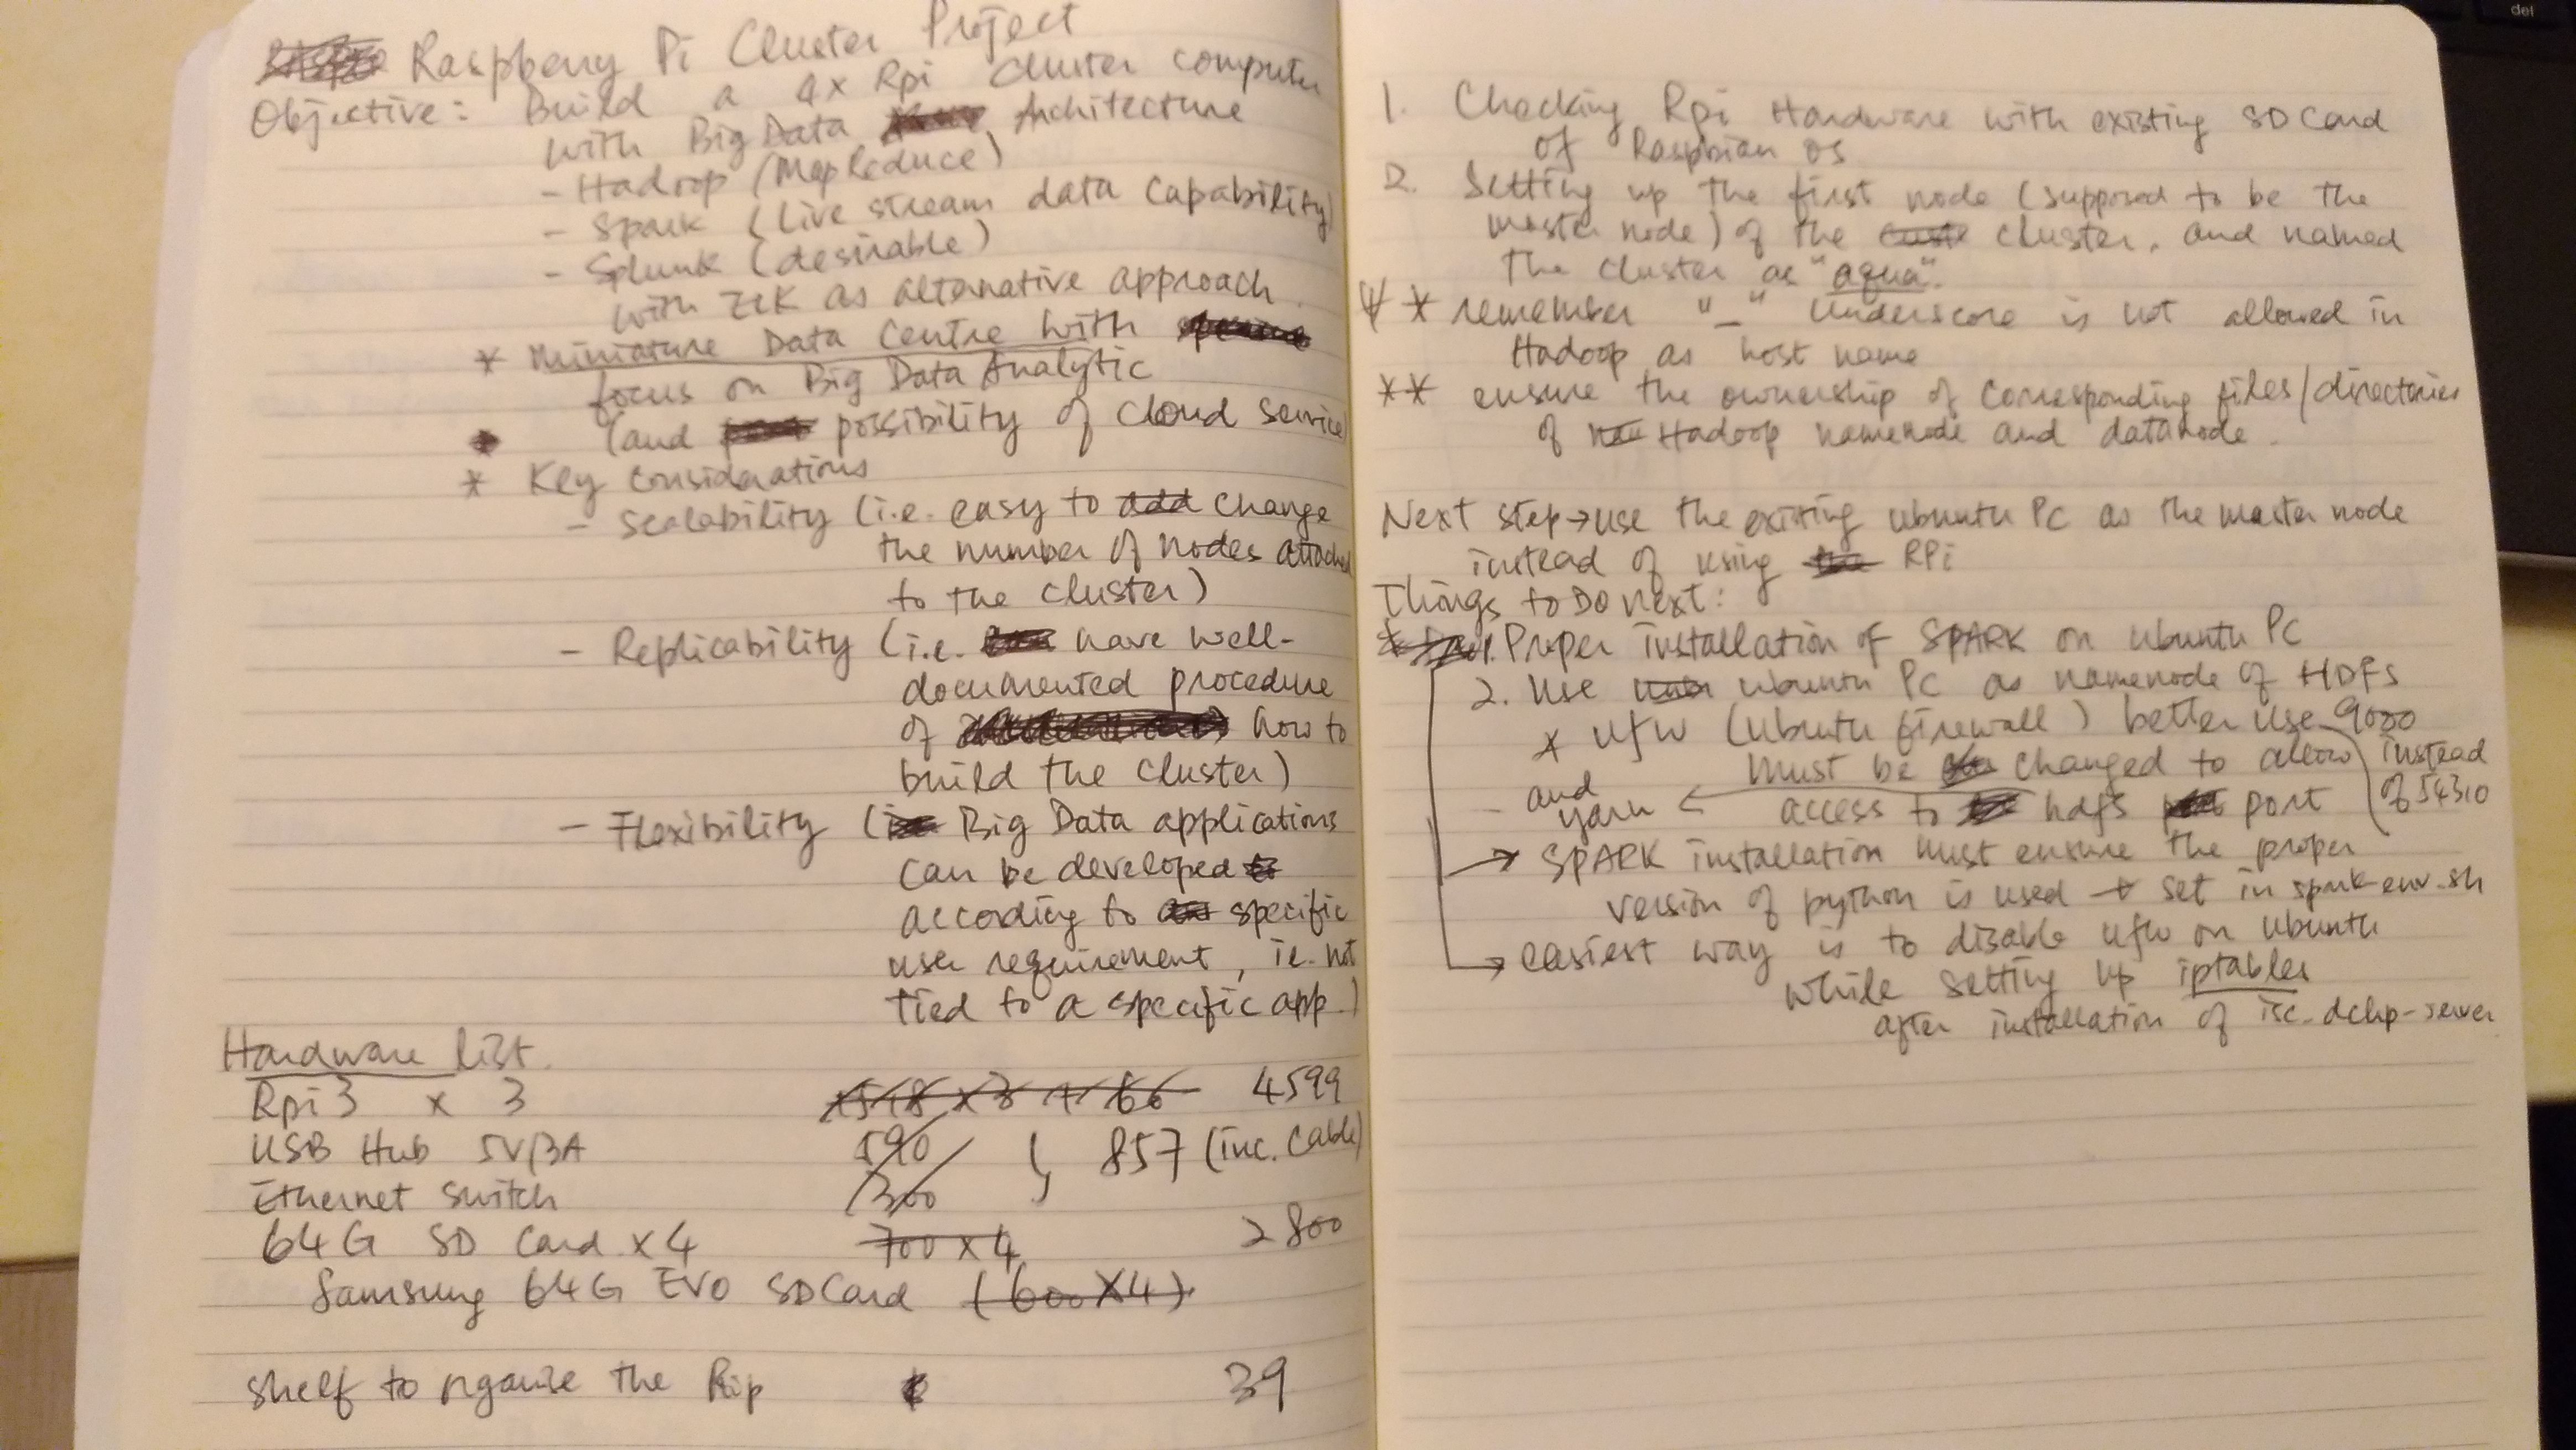 Raspberry Pi Cluster Project
Objective: Build a 4x Rpi cluster computer
with Big Data Architecture
- Hadoop (MapReduce)
- Spark (Live stream data capability)
- Splunk (desirable)
with ELK as alternative approach.
* Miniature Data Centre with
focus on Big Data Analytic
(and possibility of Cloud Service)
* Key Considerations
- Scalability (i.e. easy to add change
the number of nodes attached
to the cluster)
- Replicability (i.e. have well-
documented procedure
of how to
build the cluster)
- Flexibility (Big Data applications
can be developed
according to specific
user requirement, ie. not
tied to a specific app.)
Hardware list.
Rpi3 x 3 1518 x 3 + 66 4599
USB Hub 5V/3A 590 857 (inc. cable)
Ethernet switch 300
64G SD Card x 4 700 x 4 2800
Samsung 64G EVO SDCard (600 X 4)
shelf to rganise the Rip 39
del
1. Checking Rpi Hardware with existing SD Card
of Raspbian OS
2. Setting up the first node (supposed to be the
master node) of the cluster. and named
the cluster as "aqua".
* remember "_" underscore is not allowed in
Hadoop as host name
** ensure the ownership of corresponding files/directories
of Hadoop namenode and datanode.
Next step → use the existing ubuntu PC as the master node
instead of using RPi
Things to DO next:
1. Proper installation of SPARK on ubuntu PC
2. Use ubuntu PC as namenode of HDFS
x ufw (ubuntu firewall) better use 9000
must be changed to allow instead
and yarn ← access to hdfs port of 54310
→ SPARK installation must ensure the proper
version of python is used → set in spark-env.sh
→ easiest way is to disable ufw on ubuntu
while setting up iptables
after installation of isc-dchp-server